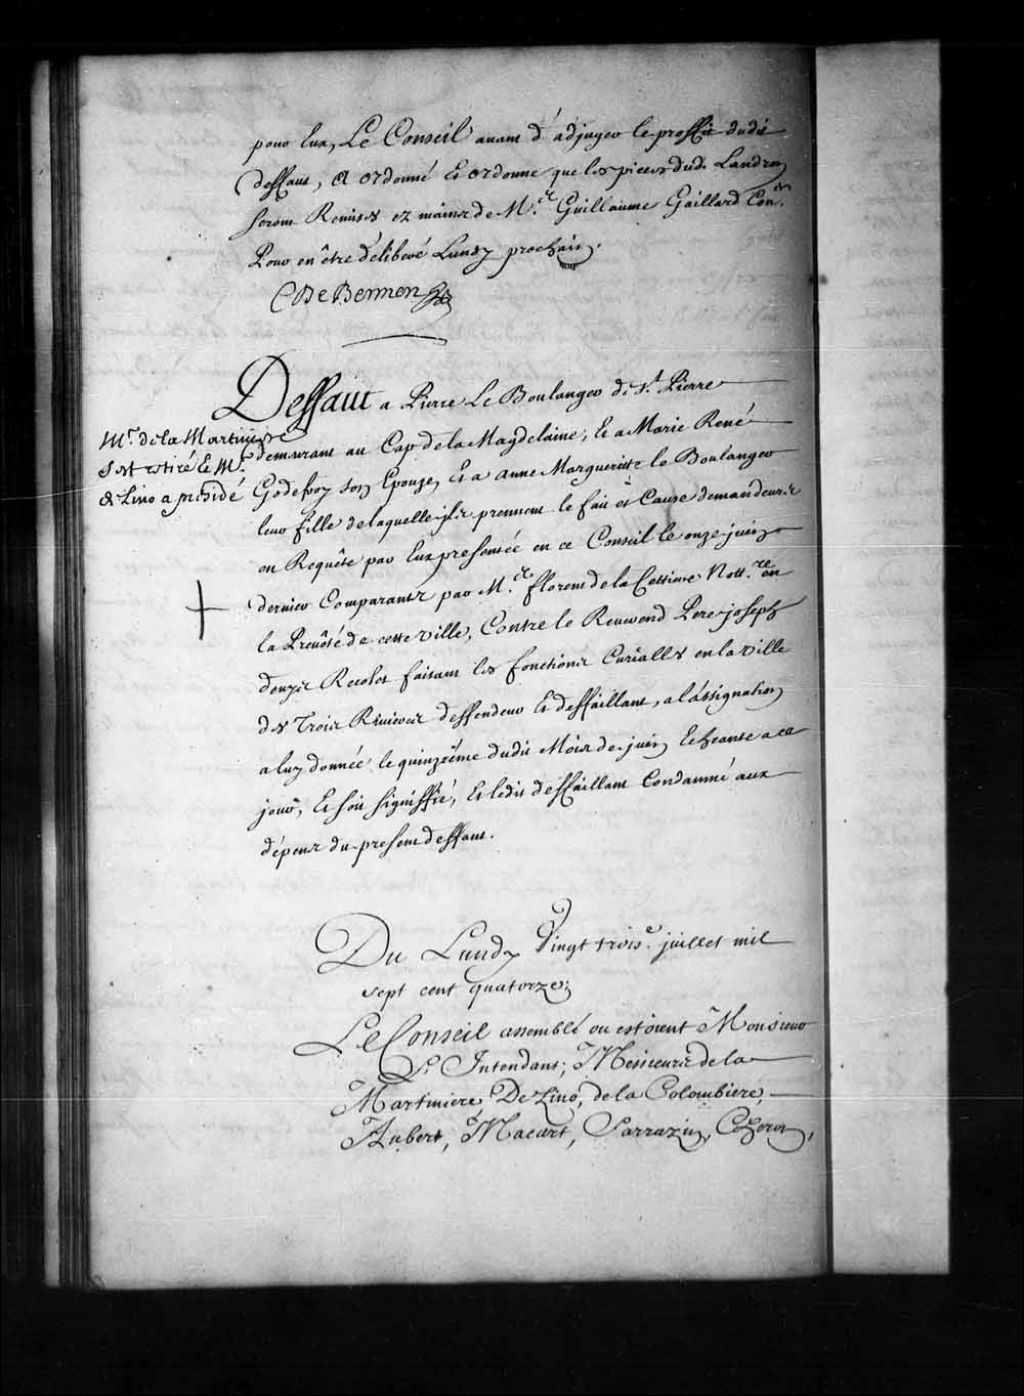 pour Eux, Le Conseil avant d'adjuger le proffit dudit
deffaut, A ordonné et ordonne que les pieces dud. Landron
seront Remises ez mains de M.e Guillaume Gaillard Con.er
Pour en être délibéré Lundy prochain.
C De Bermen
Deffaut a Pierre Le Boulanger de S.t Pierre
demeurant au Cap de la Magdelaine, Et a Marie René
Godefroy son Epouze, Et a anne Marguerite le Boulanger
leur fille de laquelle ils prennent le fait et Cause demandeurs
en Requête par Eux presentée en ce Conseil le onze juin
dernier Comparants par M.e florent de la Cettiere Nott.re en
la Prevôté de cette ville, Contre le Reverend Pere joseph
denys Recolet faisant les fonctions Curialles en la ville
des Trois Rivieres deffendeur Et deffaillant, a l'assignation
a luy donnée le quinzième dudit Mois de juin Echeante a ce
jour, Et soit signiffié, Et ledit deffaillant Condamné aux
dépens du present deffaut.
M.r de la Martiniere
s'est retiré Et M.r
de Lino a présidé
Du Lundy Vingt trois.e juillet mil
sept cent quatorze;
Le Conseil assemblé ou estoient Monsieur
L'Intendant; Messieurs de la
Martiniere De Lino, de la Colombiere,
Aubert, Macart, Sarrazin, Cheron,